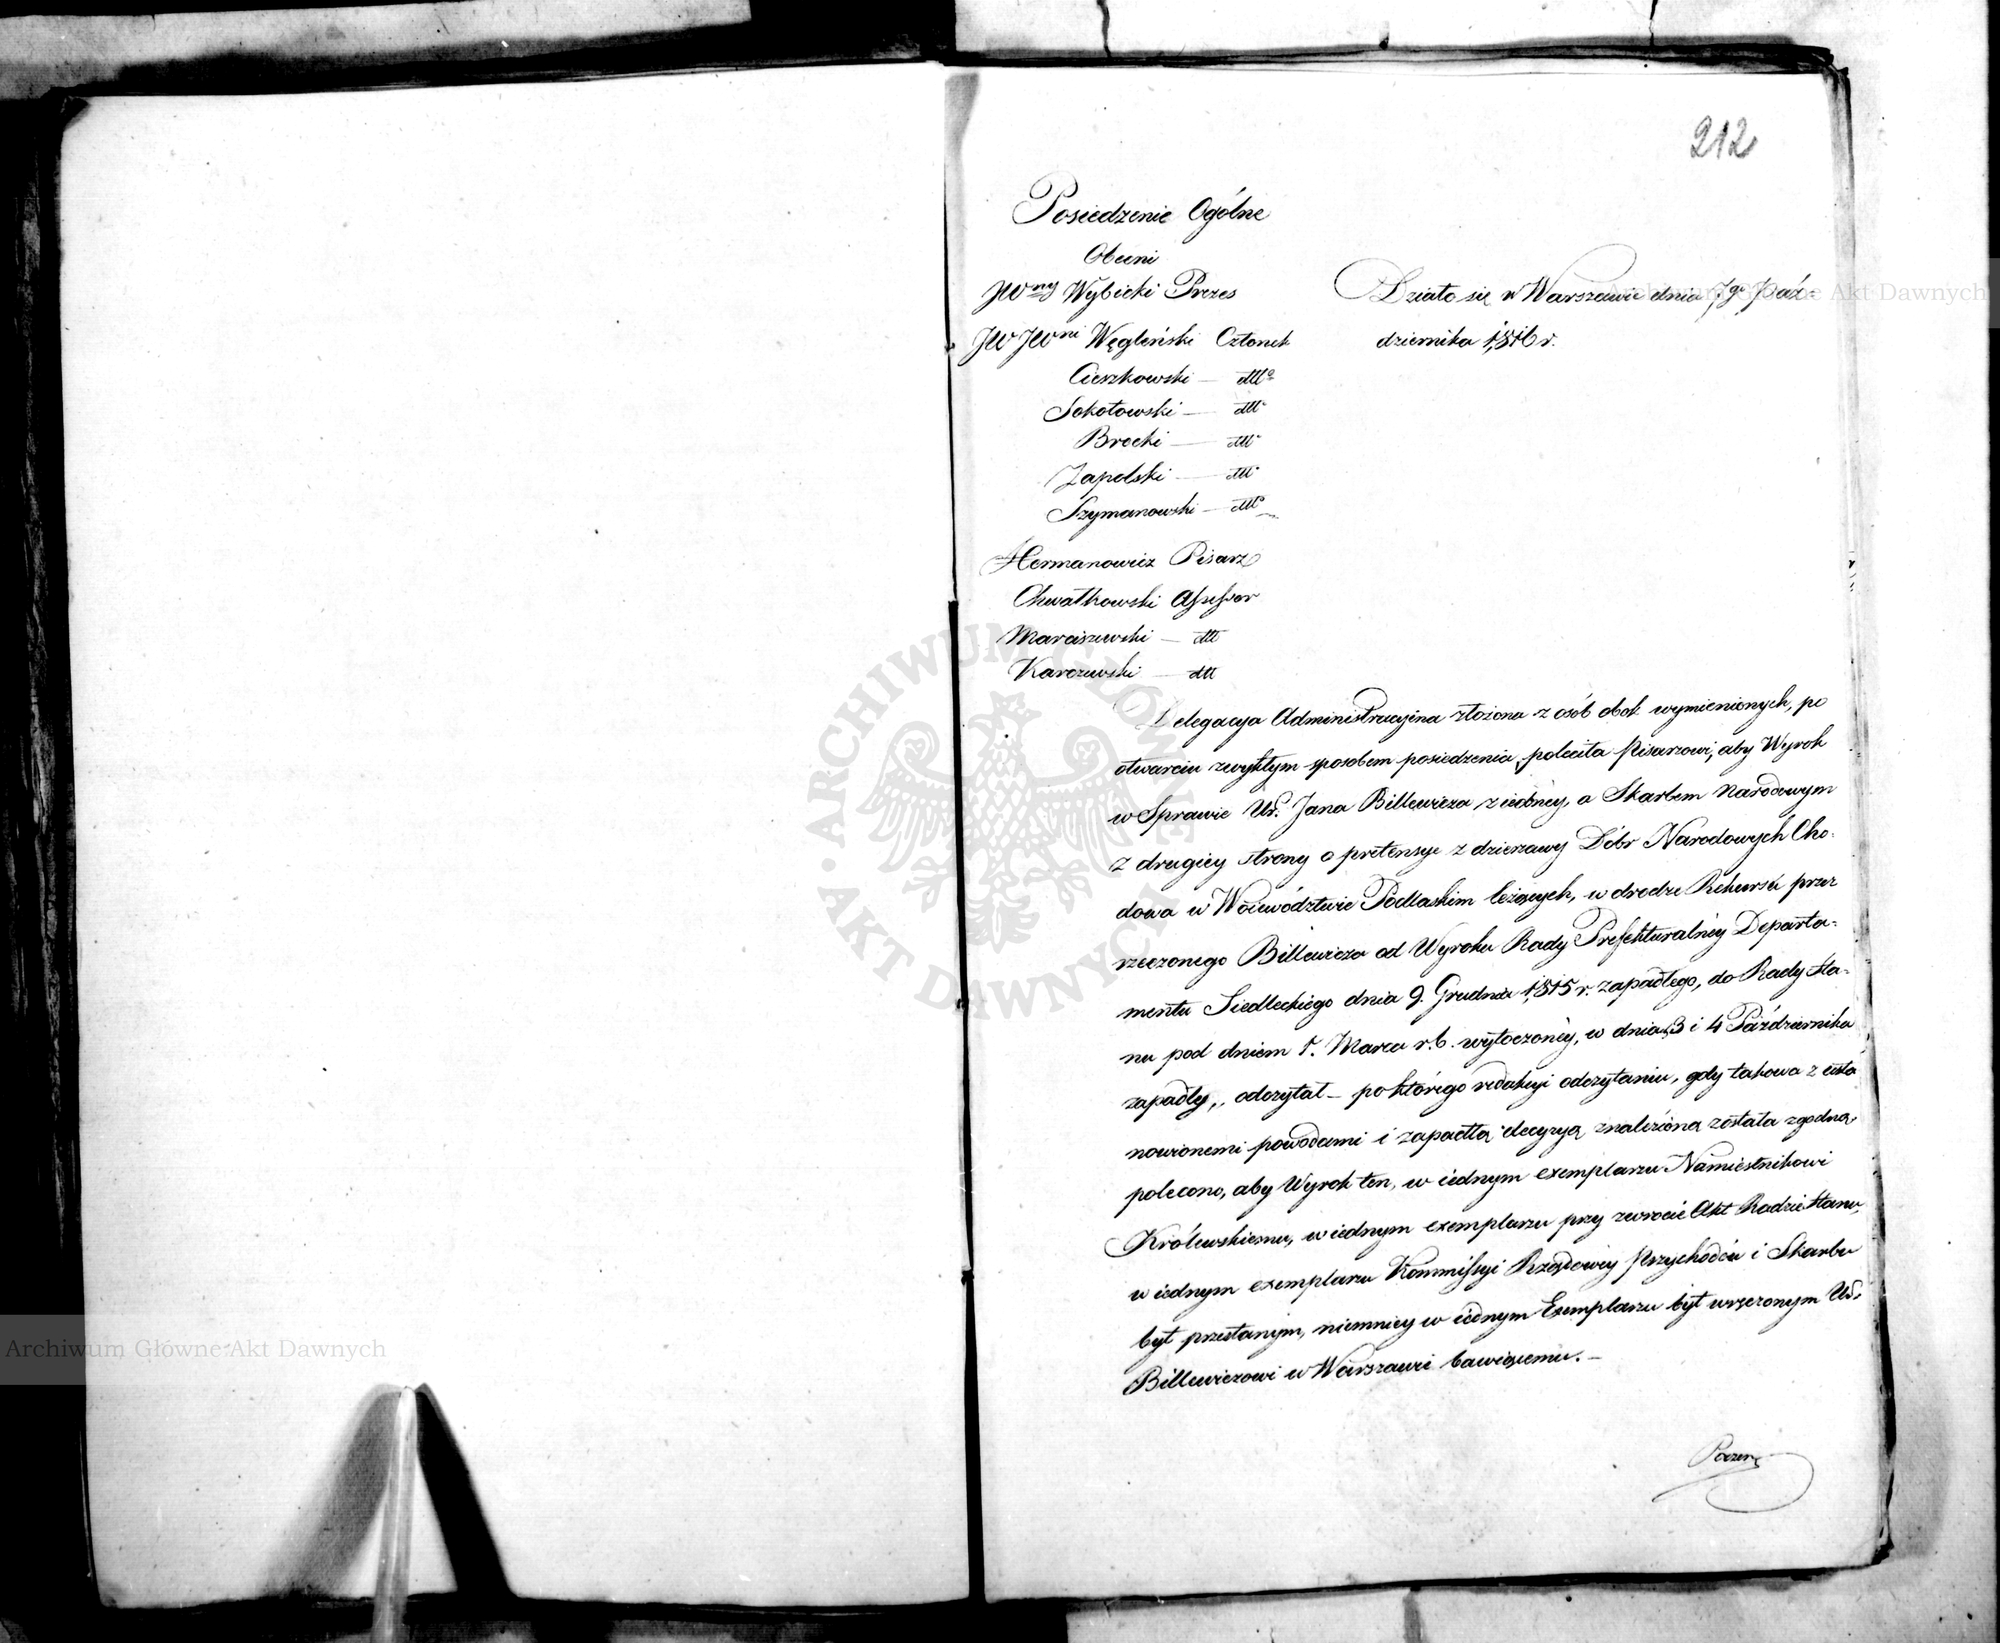 212
Posiedzenie Ogólne
Obecni
JWny Wybicki Prezes
JWJWni Węgleński Członek
Cieszkowski — dtto
Sokołowski — dtto
Brocki — dtto
Zapolski — dtto
Szymanowski — dtto
Hermanowicz Pisarz
Chwałkowski Assessor
Marciszewski — dtt
Karczewski — dtt
Działo się w Warszawie dnia 7go Paź-
dziernika 1816 r.
Delegacya Administracyina złożona z osób obok wymienionych, po
otwarciu zwykłym sposobem posiedzenia, poleciła Pisarzowi, aby Wyrok
w Sprawie Ur. Jana Billewicza z iednéy, a Skarbem Narodowym
z drugiéy strony o pretensye z dzierzawy Dóbr Narodowych Cho-
dowa w Woiewództwie Podlaskim leżących, w drodze Rekursu przez
rzeczonego Billewicza od Wyroku Rady Prefekturalnéy Departa-
mentu Siedleckiego dnia 9. Grudnia 1815 r. zapadłego, do Rady Sta-
nu pod dniem 1. Marca r. b. wytoczonéy, w dniach 3 i 4 Października
zapadły, odczytał — po którego redakcyi odczytaniu, gdy takowa z usta
nowionemi powodami i zapadłą decyzyą znalezioną została zgodną,
polecono, aby Wyrok ten, w iednym exemplarzu Namiestnikowi
Królewskiemu, w iednym exemplarzu przy zwrocie Akt Radzie Stanu,
w iednym exemplarzu Kommissyi Rządowéy Przychodów i Skarbu
był przesłanym, niemniéy w iednym Exemplarzu był wręczonym Ur.
Billewiczowi w Warszawie bawiącemu. —
Archiwum Główne Akt Dawnych
Archiwum Główne Akt Dawnych
ARCHIWUM GŁÓWNE · AKT DAWNYCH ·